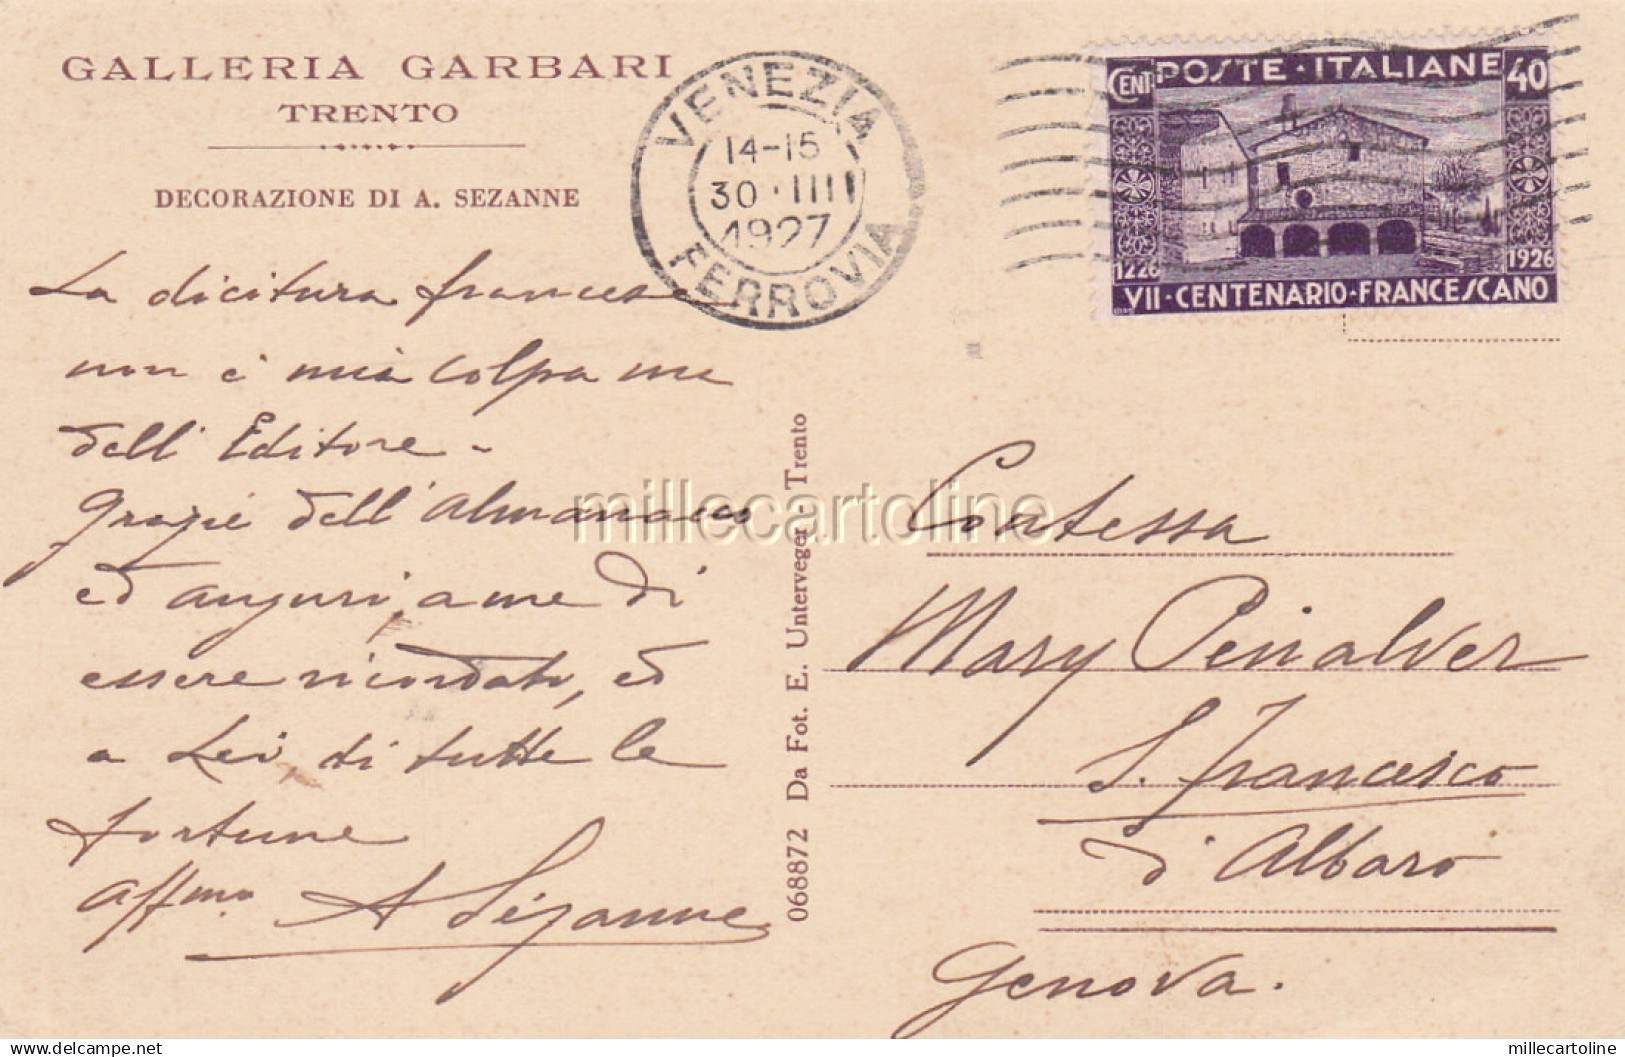 GALLERIA GARBARI
TRENTO
DECORAZIONE DI A. SEZANNE
VENEZIA
14-15
30·III
1927
FERROVIA
CENT. POSTE·ITALIANE 40
1226 1926
VII·CENTENARIO·FRANCESCANO
La dicitura francese
non è mia colpa ma
dell'Editore -
Grazie dell'almanacco
ed auguri, a me di
essere ricordato, ed
a Lei di tutte le
fortune
affmo
A Sézanne
068872 Da Fot. E. Unterveger - Trento
Contessa
Mary Peñalver
S. Francesco
d'Albaro
Genova.
millecartoline
delcampe.net
millecartoline